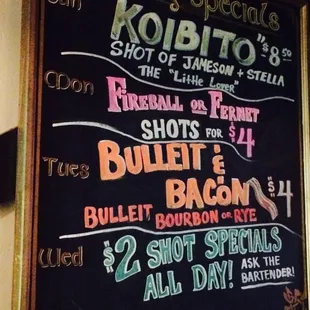 Specials
Sun
KOIBITO" $8.50
SHOT OF JAMESON + STELLA
THE "Little Lover"
Mon
FIREBALL OR FERNET
SHOTS FOR $4
Tues
BULLEIT &
BACON $4
BULLEIT BOURBON OR RYE
Wed
$2 SHOT SPECIALS
ALL DAY! ASK THE
BARTENDER!